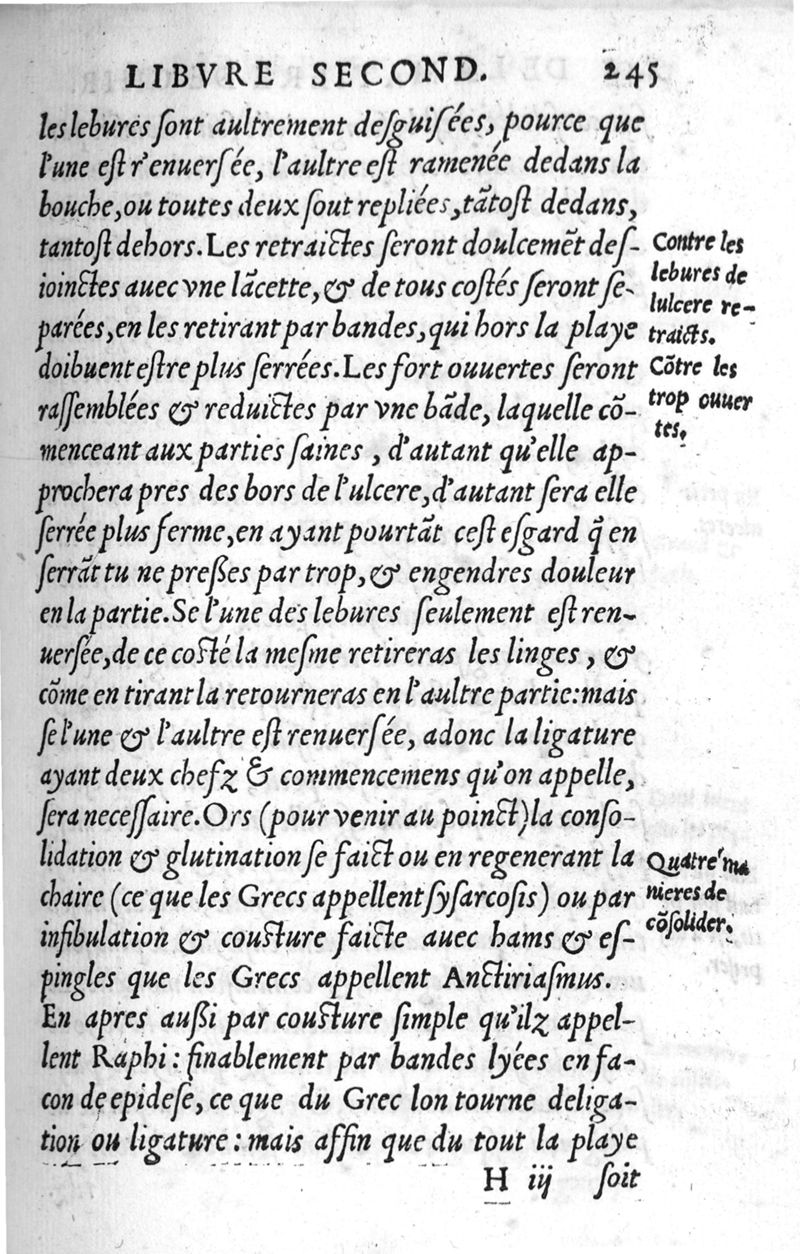 LIBVRE SECOND. 245
les lebures ſont aultrement deſguiſées, pource que
l'une eſt r'enuerſée, l'aultre eſt ramenée dedans la
bouche, ou toutes deux ſout repliées, tãtoſt dedans,
tantoſt dehors. Les retraictes ſeront doulcemẽt deſ-
ioinctes auec vne lãcette, & de tous coſtés ſeront ſe-
parées, en les retirant par bandes, qui hors la playe
doibuent eſtre plus ſerrées. Les fort ouuertes ſeront
raſſemblées & reduictes par vne bãde, laquelle cõ-
menceant aux parties ſaines, d'autant qu'elle ap-
prochera pres des bors de l'ulcere, d'autant ſera elle
ſerrée plus ferme, en ayant pourtãt ceſt eſgard q̃ en
ſerrãt tu ne preſſes par trop, & engendres douleur
en la partie. Se l'une des lebures ſeulement eſt ren-
uerſée, de ce coſté la meſme retireras les linges, &
cõme en tirant la retourneras en l'aultre partie: mais
ſe l'une & l'aultre eſt renuerſée, adonc la ligature
ayant deux chefz & commencemens qu'on appelle,
ſera neceſſaire. Ors (pour venir au poinct) la conſo-
lidation & glutination ſe faict ou en regenerant la
chaire (ce que les Grecs appellent ſyſarcoſis) ou par
infibulation & couſture faicte auec hams & eſ-
pingles que les Grecs appellent Anctiriaſmus.
En apres auſſi par couſture ſimple qu'ilz appel-
lent Raphi: finablement par bandes lyées en fa-
con de epideſe, ce que du Grec lon tourne deliga-
tion ou ligature: mais affin que du tout la playe
H iij ſoit
Contre les
lebures de
lulcere re-
traicts.
Cõtre les
trop ouuer
tes.
Quatre ma
nieres de
cõſolider.